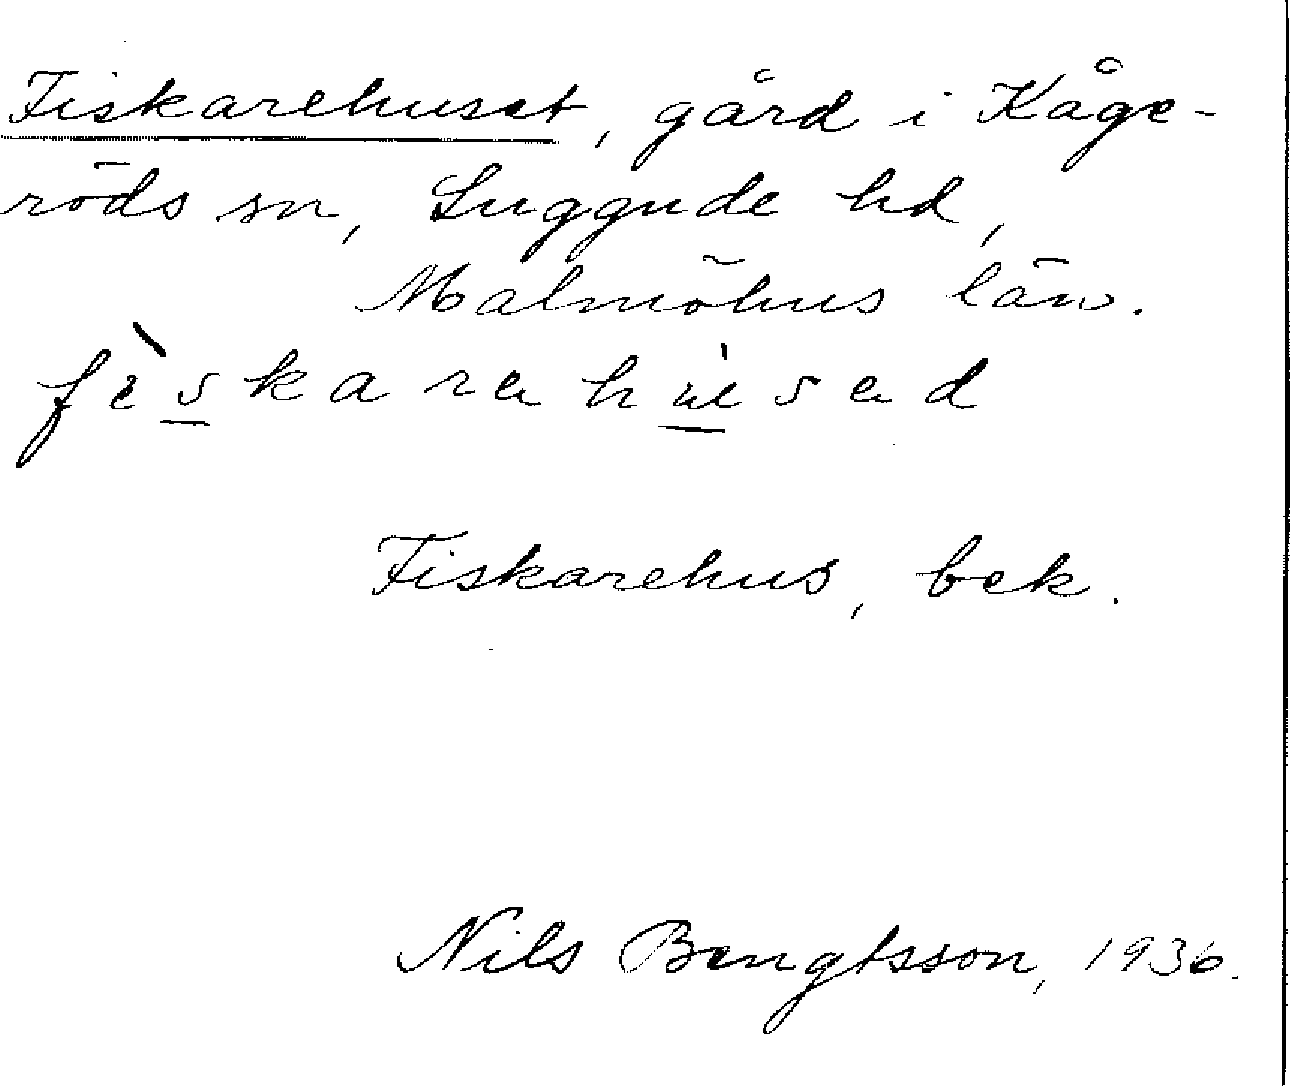 Fiskarehuset, gård i Kåge-
röds sn, Luggude hd,
Malmöhus län.
Fiskarehus, bek.
Nils Bengtsson, 1936.